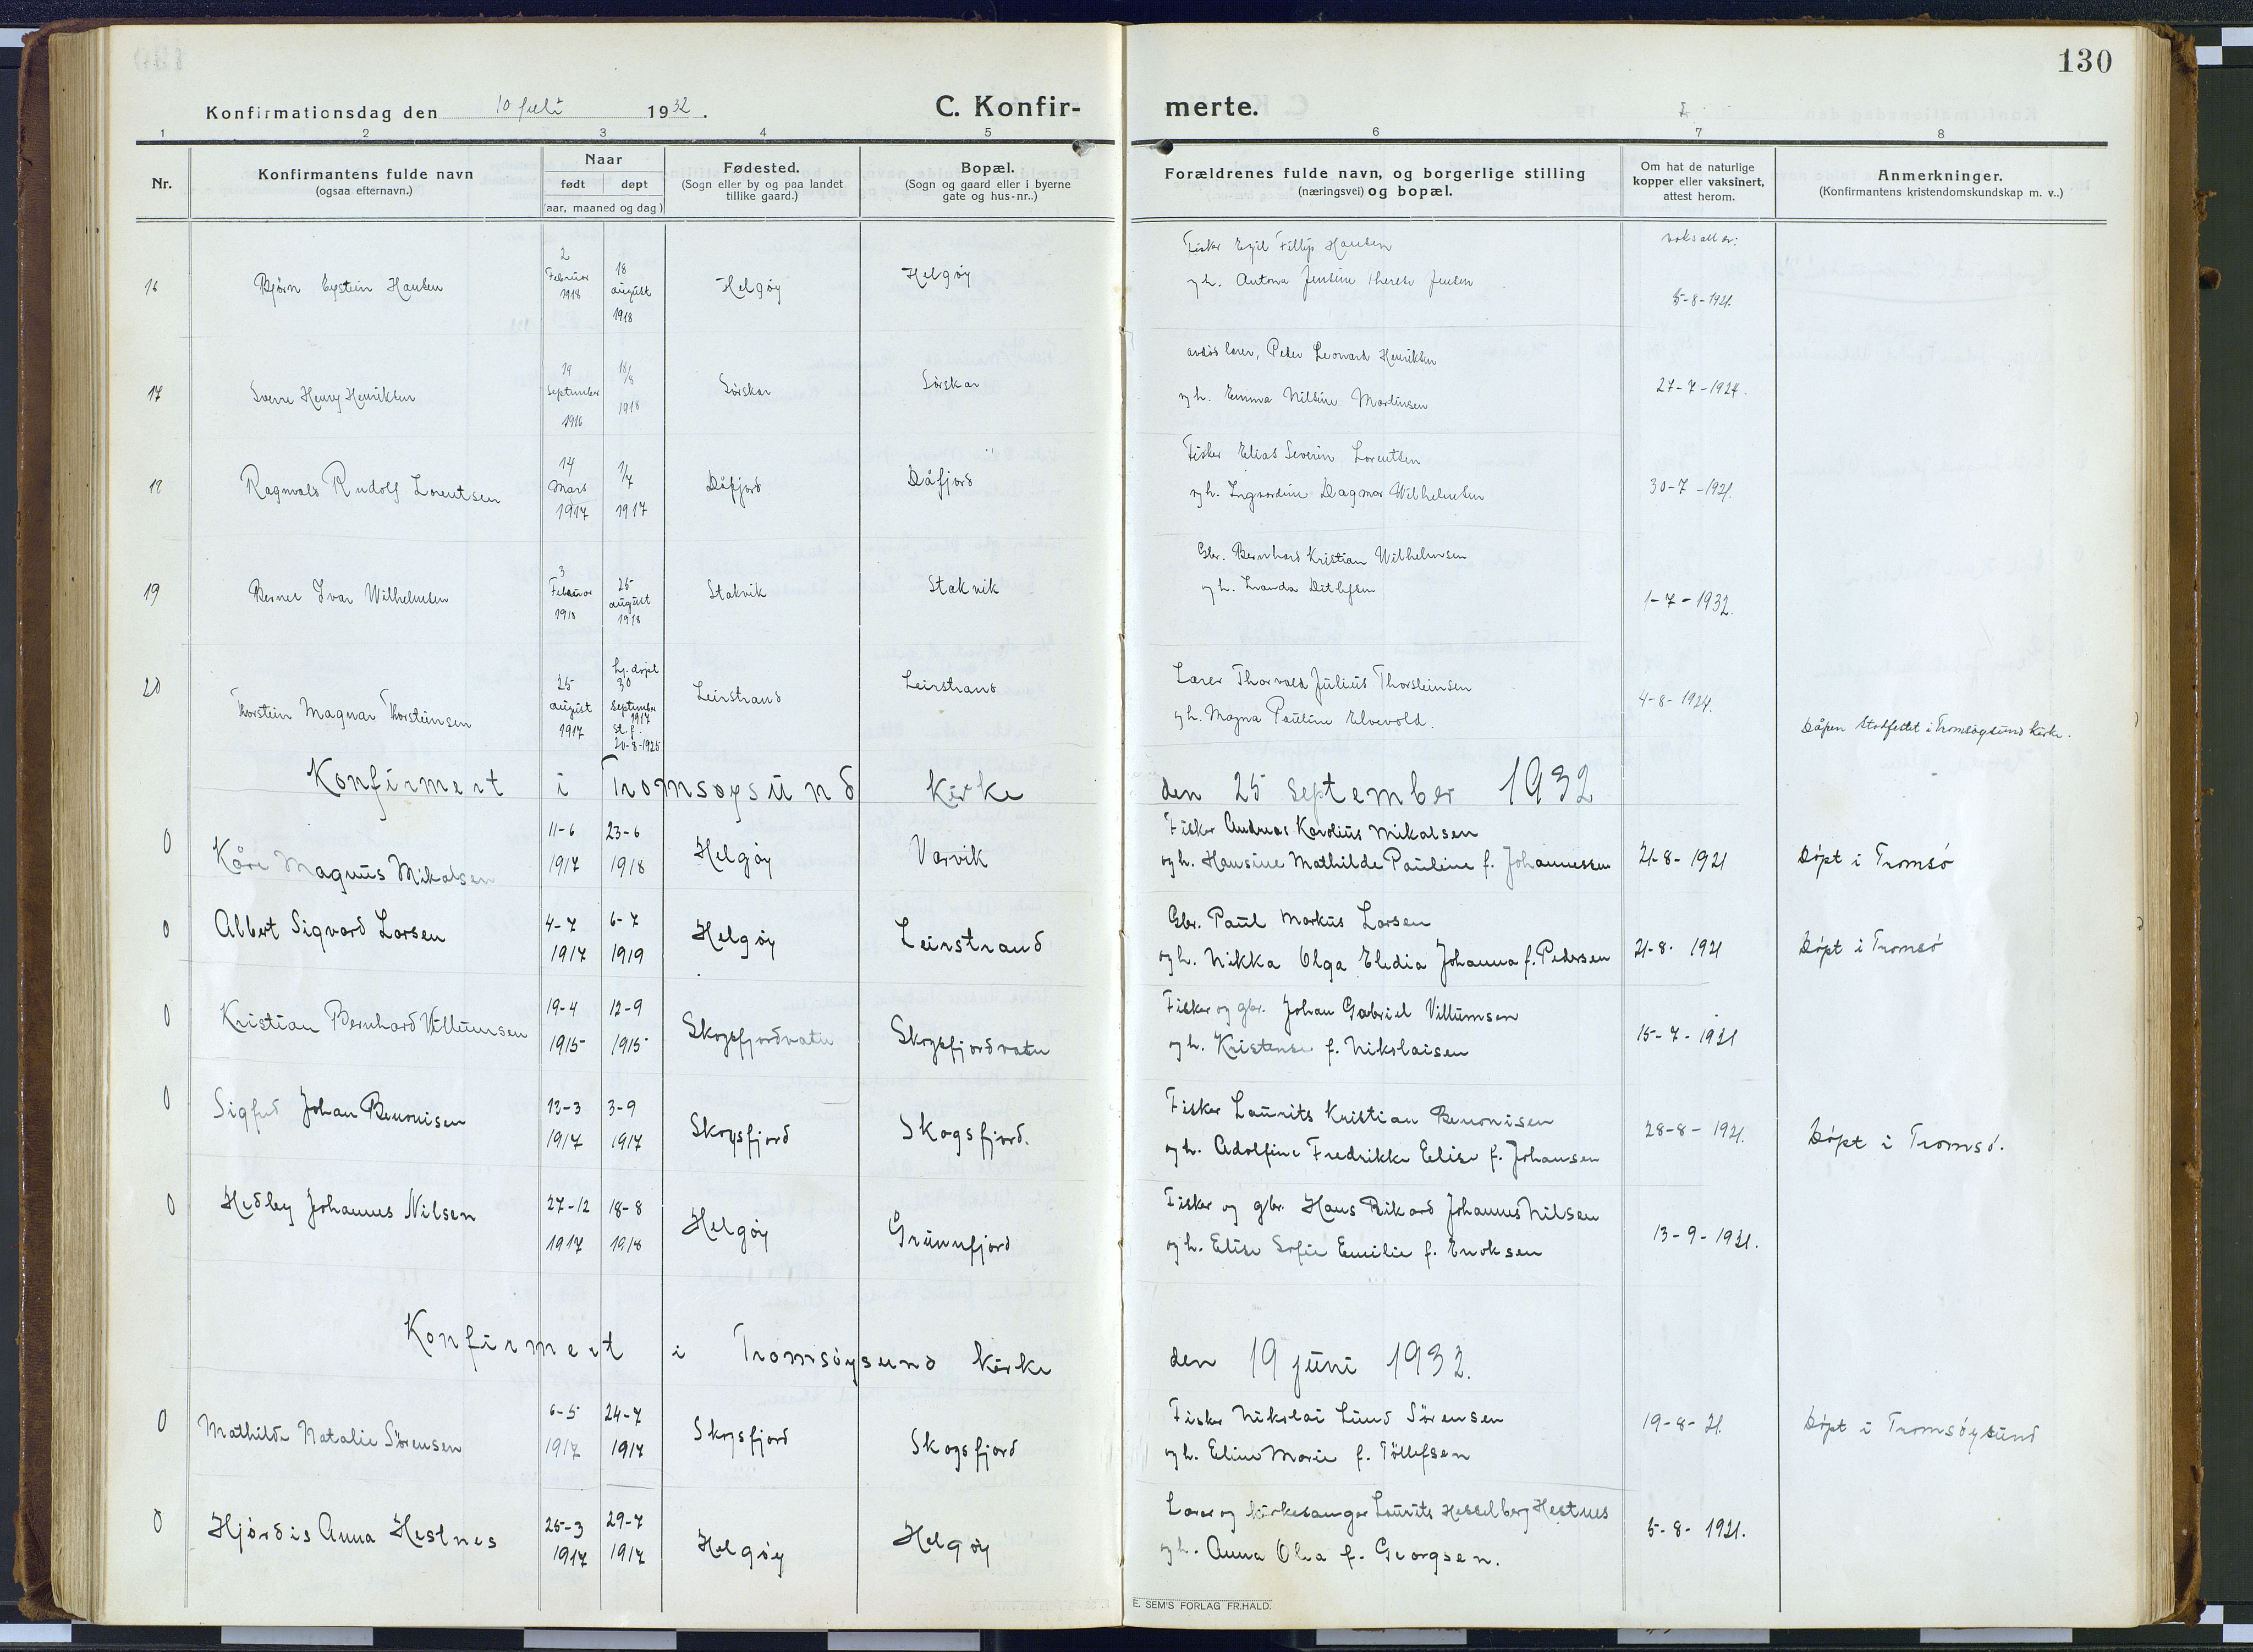 130
Konfirmationsdag den 10 juli 1932.
C. Konfirmerte.
1 2 3 4 5 6 7 8
Nr.
Konfirmantens fulde navn
(ogsaa efternavn.)
Naar
født døpt
(aar, maaned og dag)
Fødested.
(Sogn eller by og paa landet
tillike gaard.)
Bopæl.
(Sogn og gaard eller i byerne
gate og hus-nr..)
Forældrenes fulde navn, og borgerlige stilling
(næringsvei) og bopæl.
Om hat de naturlige
kopper eller vaksinert,
attest herom.
Anmerkninger.
(Konfirmantens kristendomskundskap m. v..)
16 Bjørn Eystein Hansen
2 Februar 1918
18 august 1918
Helgøy
Helgøy
Fisker Egil Fillip Hansen
og h. Antona Jensine Therese Jensen
5-8-1921.
17 Sverre Henry Henriksen
19 September 1916
18/8 1918
Sörskar
Sörskar
Peder Leonard Henriksen
og h. Emma Nilsine Martinsen
27-7-1924.
18 Ragnvald Rudolf Lorentsen
14 Mars 1917
1/7 1917
Dåfjord
Dåfjord
Fisker Elias Severin Lorentsen
og h. Ingvardine Dagmar Wilhelmsen
30-7-1921.
19 Berner Ivar Wilhelmsen
3 Februar 1918
25 august 1918
Stakvik
Stakvik
Gbr. Bernhard Kristian Wilhelmsen
og h. Ditlefsen
1-7-1932.
20 Thorstein Magnar Thorsteinsen
25 august 1917
hj. døpt 30 September 1917 St. f. 20-8-1925
Leirstrand
Leirstrand
Lærer Thorvald Julius Thorsteinsen
og h. Magna Pauline Elvevold.
4-8-1924.
Dåpen stadfestet i Tromsøysund kirke.
Konfirmert i Tromsøysund Kirke den 25 September 1932
0 Kåre Magnus Mikalsen
11-6 1917
23-6 1918
Helgøy
Varvik
Fisker Andreas Karolius Mikalsen
og h. Hansine Mathilde Pauline f. Johannessen
21-8-1921
Døpt i Tromsø
0 Albert Sigvard Larsen
4-7 1917
6-7 1919
Helgøy
Leirstrand
Gbr. Paul Markus Larsen
og h. Nikka Olga Elidia Johanna f. Pedersen
21-8-1921
Døpt i Tromsø
0 Kristian Bernhard Villumsen
19-4 1915
12-9 1915
Skogsfjordvatn
Skogsfjordvatn
Fisker og gbr. Johan Gabriel Villumsen
og h. Kristense f. Nikolaisen
15-7-1921
0 Sigfred Johan Benonisen
13-3 1917
3-9 1917
Skogsfjord
Skogsfjord.
Fisker Laurits Kristian Benonisen
og h. Adolfine Fredrikke Elise f. Johansen
28-8-1921.
Døpt i Tromsø.
0 Hedley Johannes Nilsen
27-12 1917
18-8 1918
Helgøy
Grunnfjord
Fisker og gbr. Hans Rikard Johannes Nilsen
og h. Elise Sofie Emilie f. Enoksen
13-9-1921.
Konfirmert i Tromsøysund Kirke den 19 juni 1932.
0 Mathilde Natalie Sørensen
6-5 1917
24-7 1917
Skogsfjord
Skogsfjord
Fisker Nikolai Lund Sørensen
og h. Eline Marie f. Tøllefsen
19-8-21.
Døpt i Tromsøysund
0 Hjørdis Anna Hestnes
25-3 1917
29-7 1917
Helgøy
Helgøy
Lærer og kirkesanger Laurits Hesselberg Hestnes
og h. Anna Olea f. Georgsen.
5-8-1921.
E. SEM'S FORLAG FR.HALD.